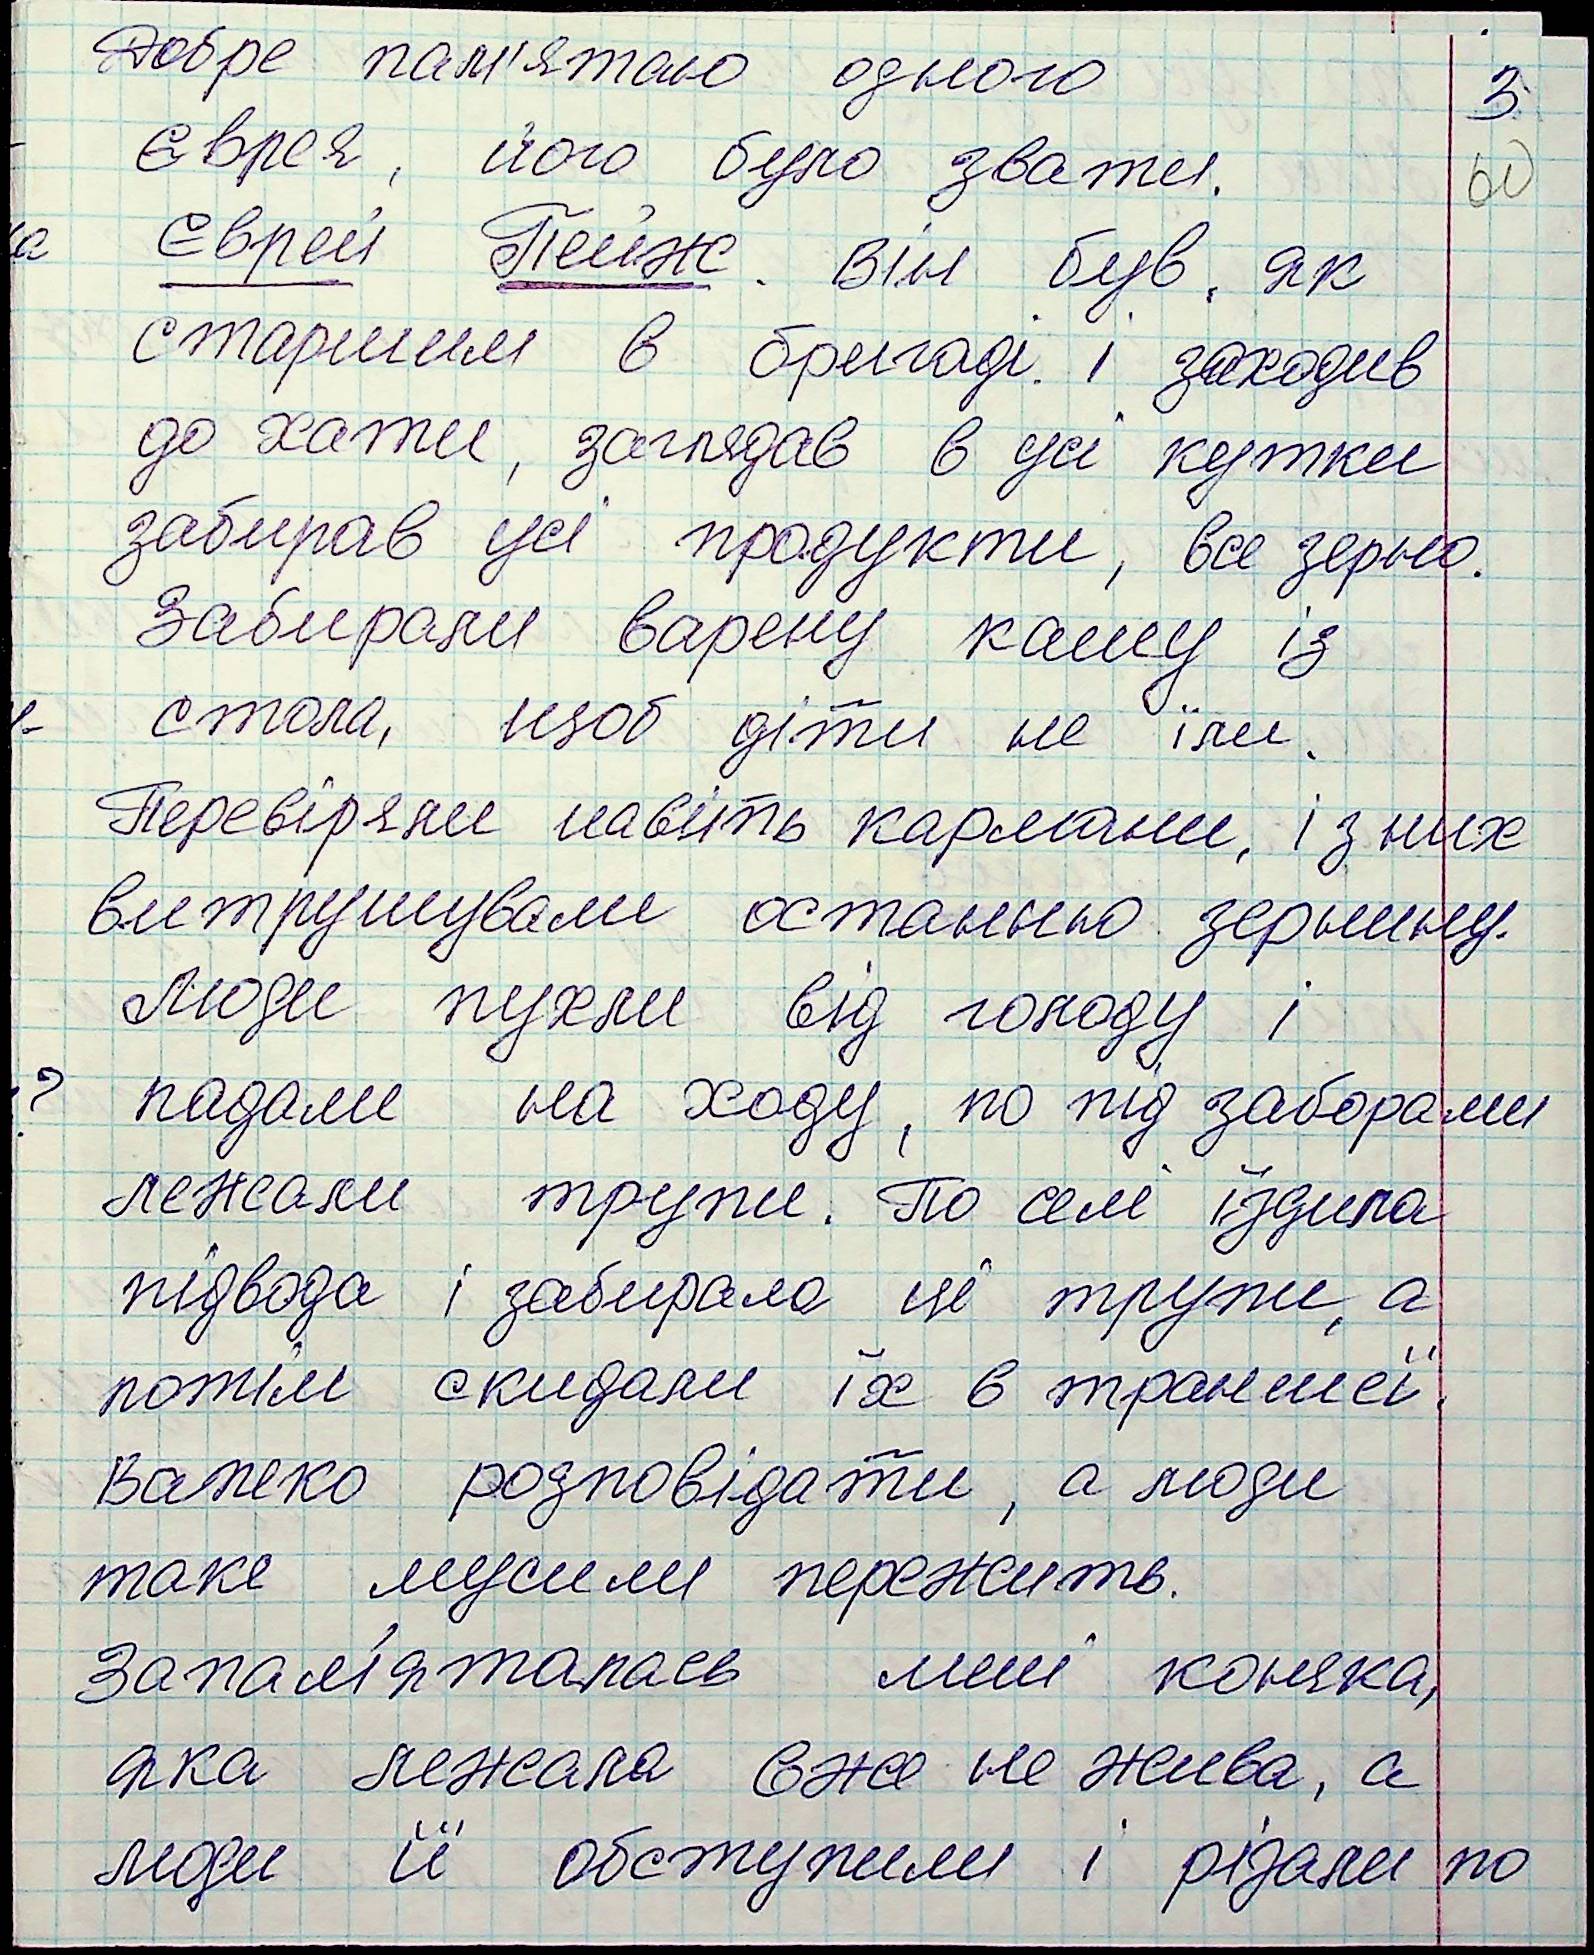 Добре пам'ятаю одного
3
Єврея, його було звати.
60
Єврей Пейж. Він був, як
старшим в бригаді. і заходив
до хати, заглядав в усі кутки
забирав усі продукти, все зерно.
Забирали варену кашу із
стола, щоб діти не їли.
Перевіряли навіть кармани, із них
витрушували останню зернину.
Люди пухли від голоду і
падали на ходу, по під заборами
лежали трупи. По селі їздила
підвода і забирала ці трупи, а
потім скидали їх в траншеї.
Валеко розповідати, а люди
таке мусили пережить.
Запам'яталась мені коняка,
яка лежала вже не жива, а
люди її обступили і різали по